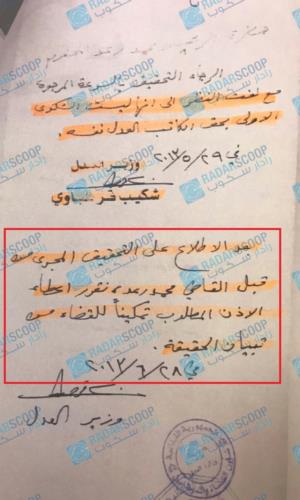 الرجاء التحقيق بالسرعة المرجوة
مع لفت النظر الى انها ليست الشكوى
الاولى بحق الكاتب العدل نفسه.
في ٢٩/٥/٢٠١٣
وزير العدل
شكيب قرطباوي
بعد الاطلاع على التحقيق المجرى من
قبل القاضي محمد رعد، نقرر اعطاء
الاذن المطلوب تمكيناً للقضاء من
تبيان الحقيقة.
في ٢٨/٦/٢٠١٣
وزير العدل
RADARSCOOP
رادار سكوب